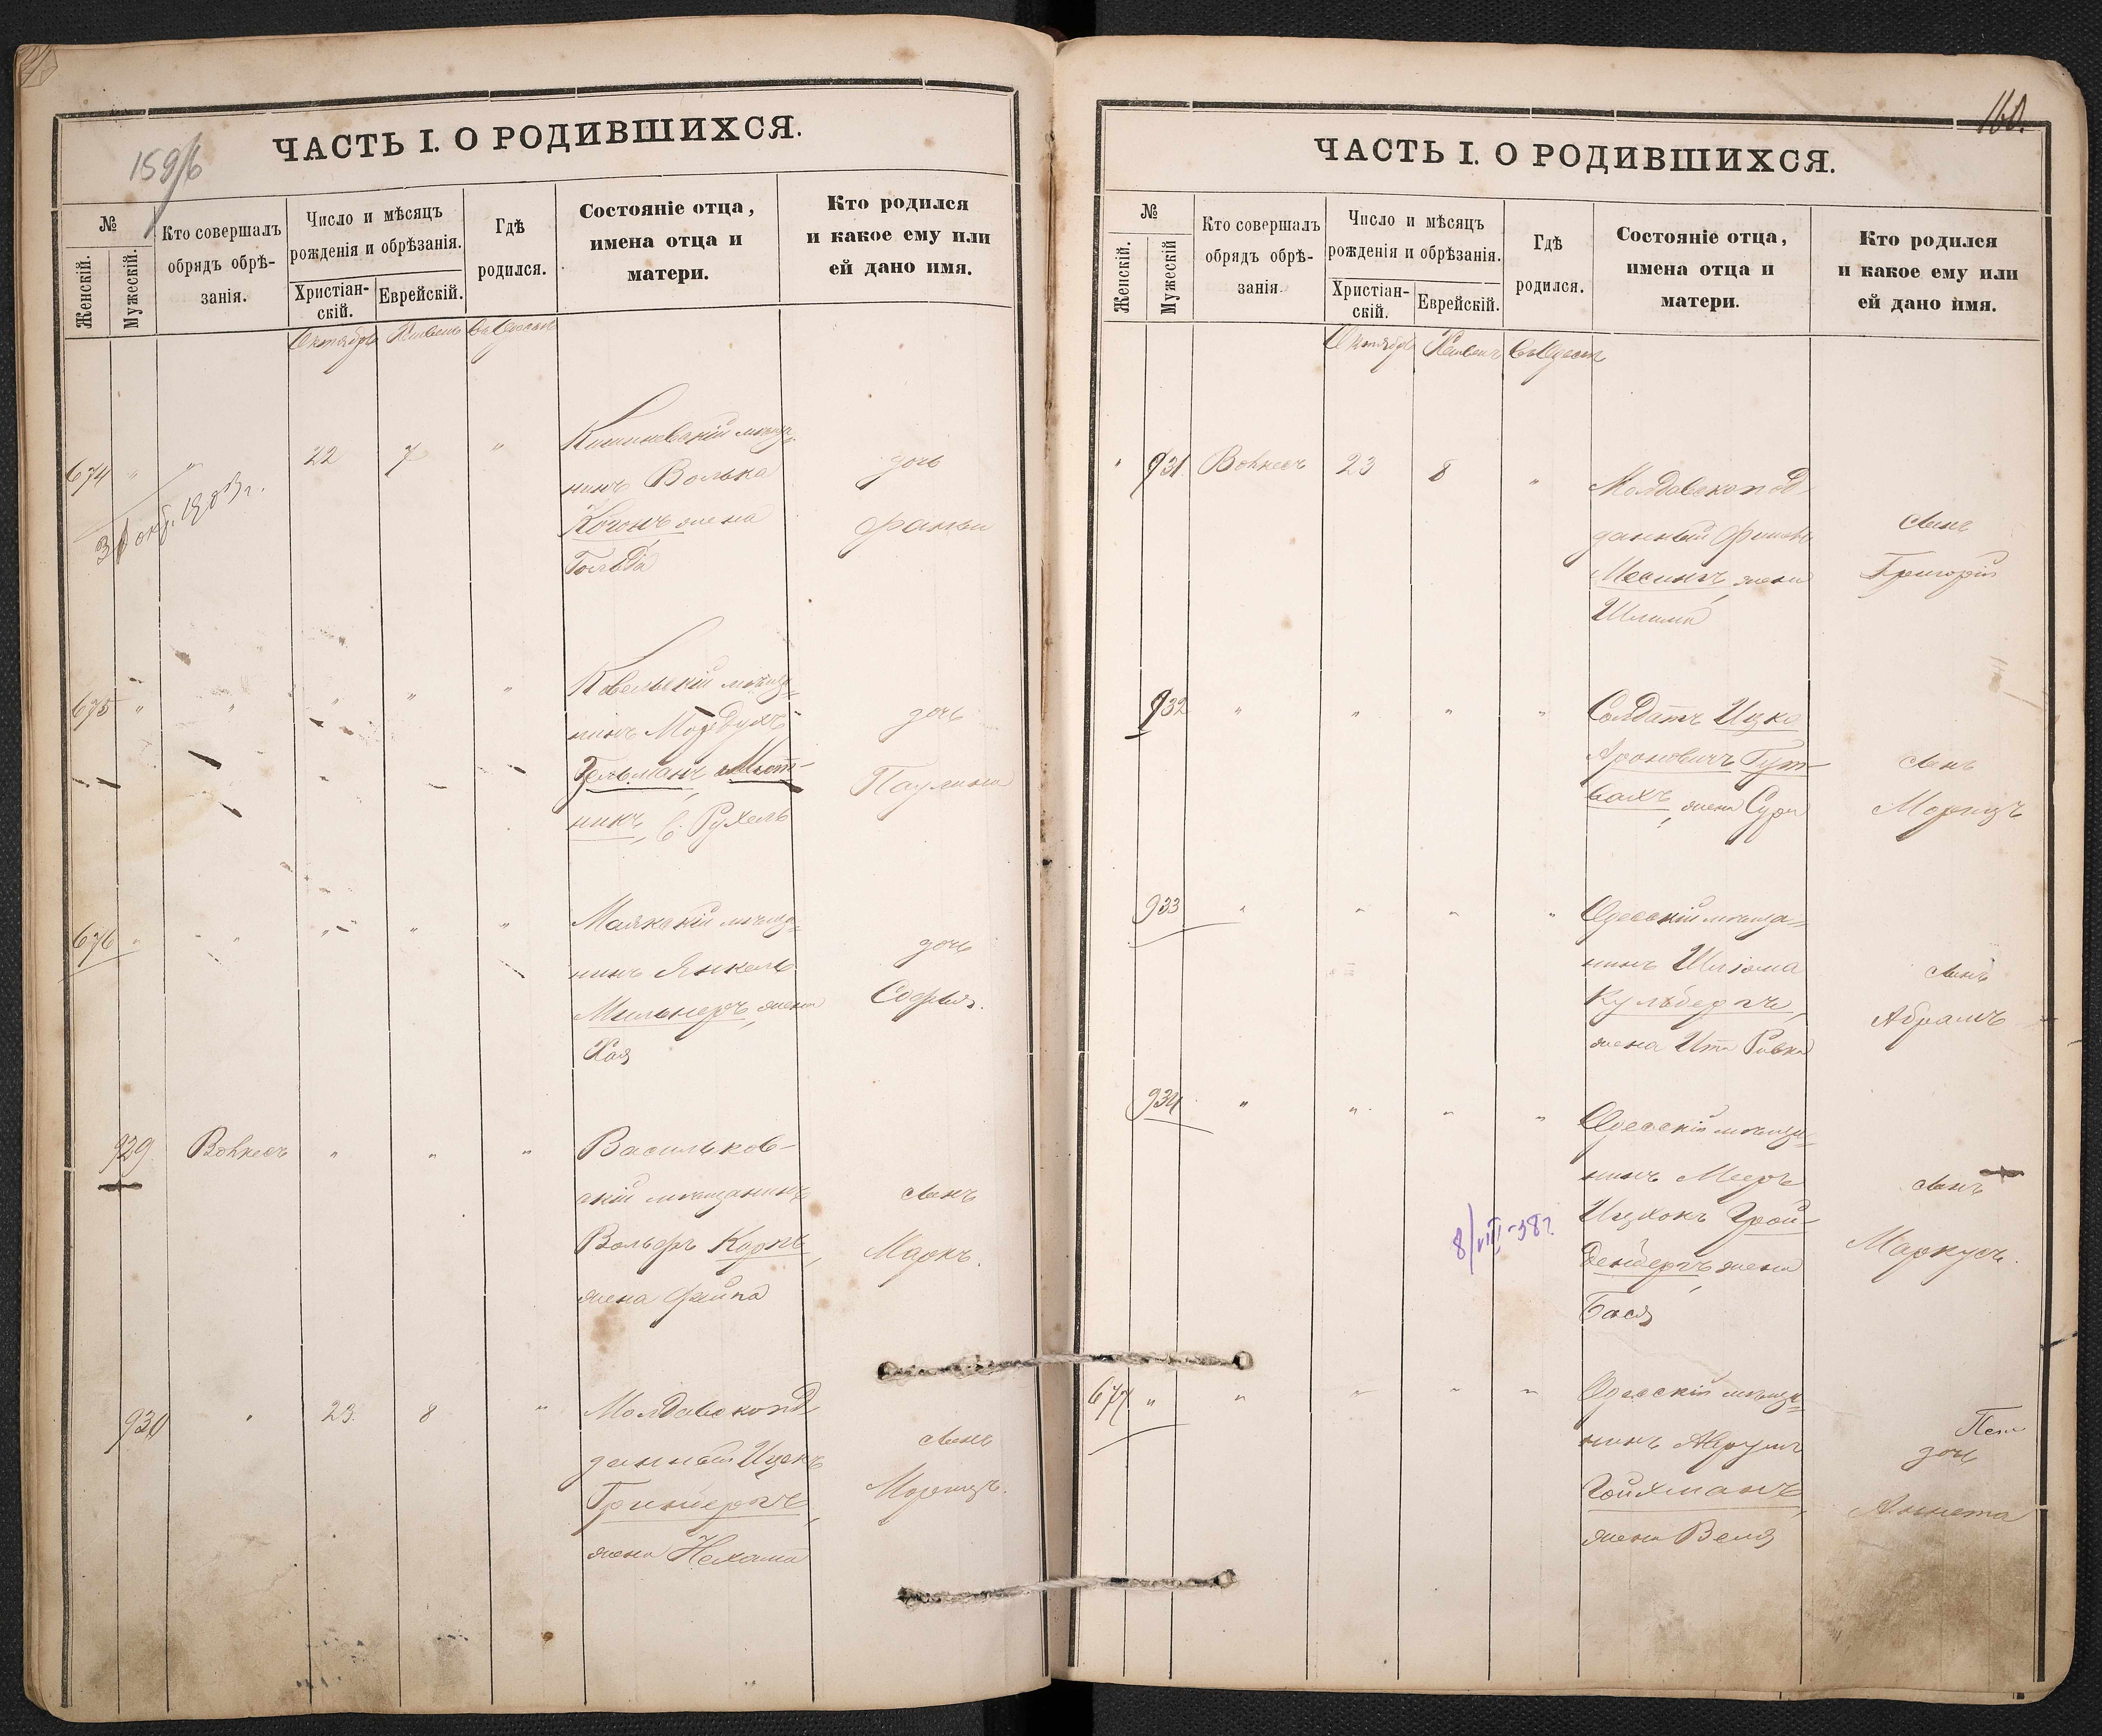 159/6
ЧАСТЬ I. О РОДИВШИХСЯ.
№
Женскій.
Мужескій.
Кто совершалъ
обрядъ обрѣ-
занія.
Число и мѣсяцъ
рожденія и обрѣзанія.
Христіан-
скій.
Еврейскій.
Гдѣ
родился.
Состояніе отца,
имена отца и
матери.
Кто родился
и какое ему или
ей дано имя.
Октябрь
674 " " 22 7 "
Кишиневскій мѣща-
нинъ Волько
Когонъ жена
Гольда
дочь
Фанни
675 " " " " "
Ковельскій мѣща-
нинъ Мордухъ
Гельманъ
никъ, ж. Рухель
дочь
Паулина
676 " " " " "
Маякскій мѣща-
нинъ Янкель
Мильнеръ, жена
Хая
дочь
Софья.
929 " " "
Васильков-
скій мѣщанинъ
Вольфъ Коркъ,
жена Фейга
сынъ
Маркъ.
930 " 23. 8 "
Молдавскопод-
данный Ицекъ
Гринбергъ,
жена Нехама
сынъ
Морицъ.
160.
ЧАСТЬ I. О РОДИВШИХСЯ.
№
Женскій.
Мужескій
Кто совершалъ
обрядъ обрѣ-
занія.
Число и мѣсяцъ
рожденія и обрѣзанія.
Христіан-
скій.
Еврейскій.
Гдѣ
родился.
Состояніе отца,
имена отца и
матери.
Кто родился
и какое ему или
ей дано имя.
Октябрь
" 931 23 8 "
Молдавскопод-
данный Фишель
Месингъ, жена
Шлима
сынъ
Григорій
932 " " " "
Солдатъ Ицко
Ароновичъ Гут-
жена Сура
сынъ
Морицъ
933 " " " "
Одесскій мѣща-
нинъ Шлёма
Кульбергъ,
жена Ита Ривка
сынъ
Абрамъ
934 " " " "
Одесскій мѣща-
нинъ Мееръ
Ицхокъ Грой-
денбергъ, жена
Бася
сынъ
Маркусъ.
8/VIII-38г.
677 " " " " "
Одесскій мѣща-
нинъ Аврумъ
Гойхманъ,
жена Веля
дочь
Аннета